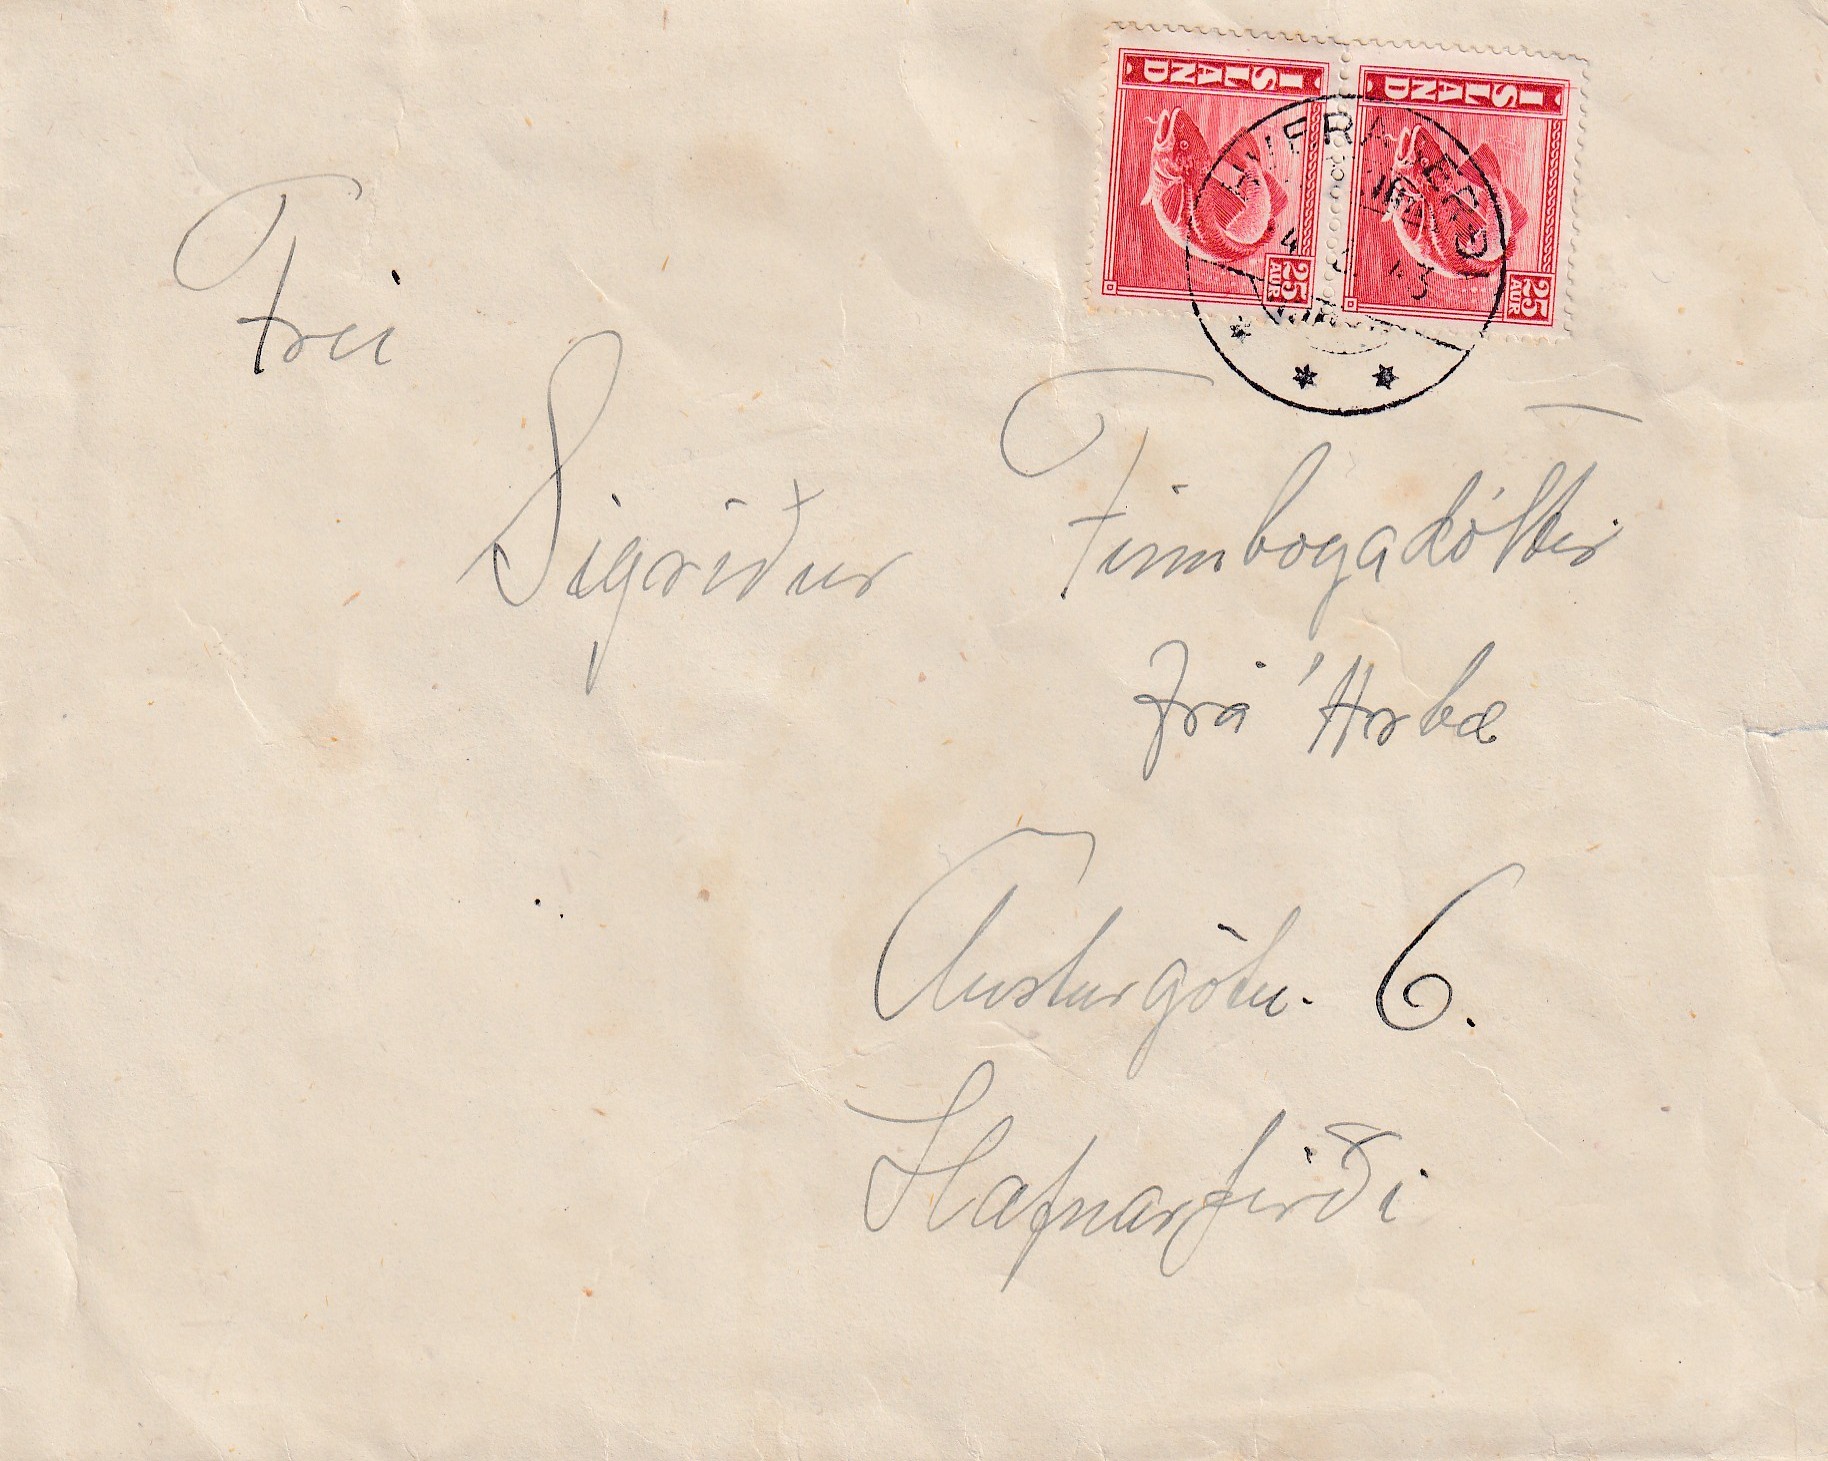 ISLAND ISLAND
25 AUR 25 AUR
HVERAGERÐI
Frú
Sigríður Finnbogadóttir
frá
Austurgötu. 6.
Hafnarfirði